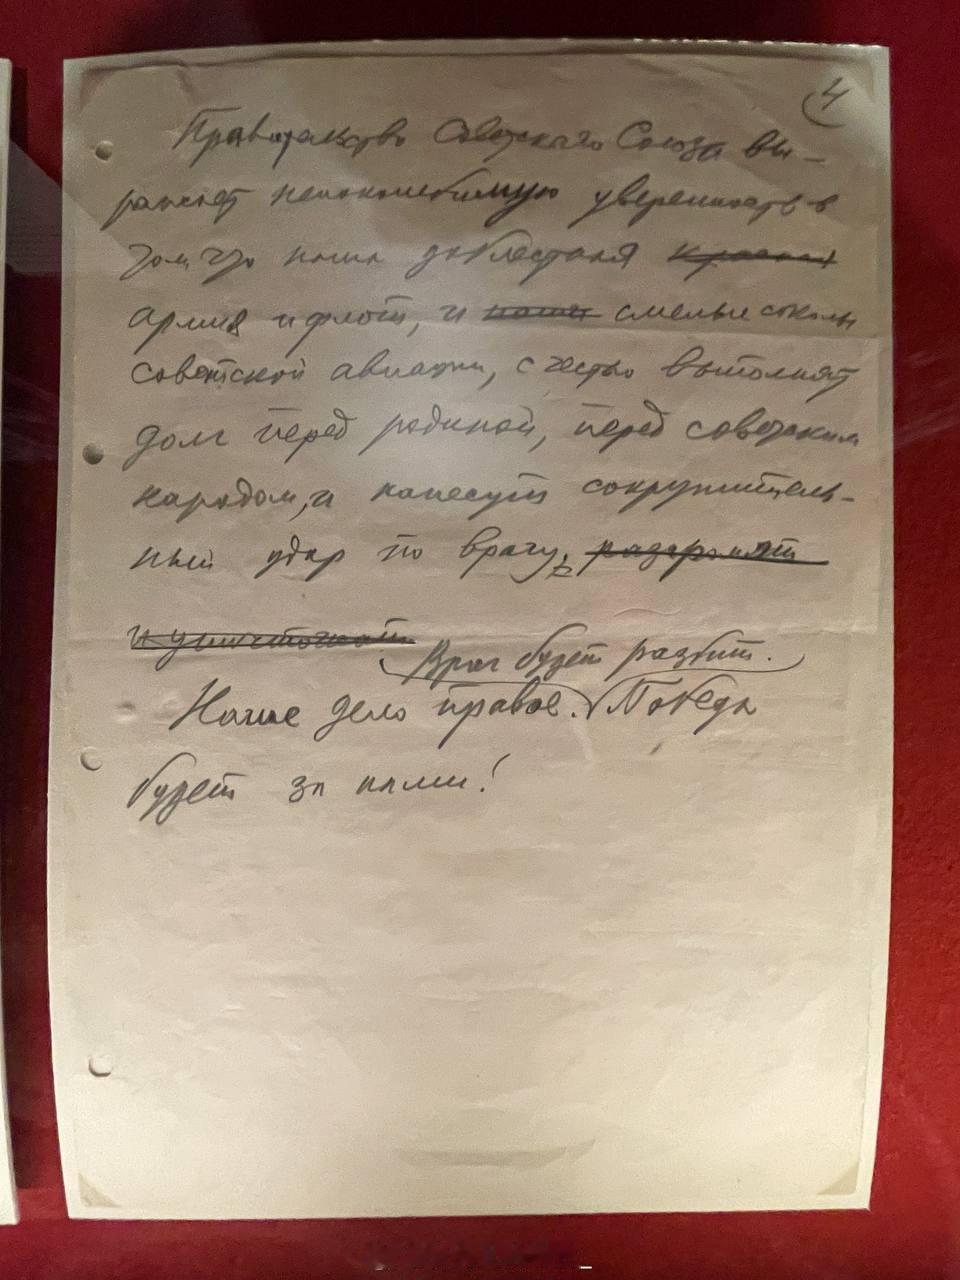 4
Правительство Советского Союза вы-
ражает непоколебимую уверенность в
том, что наша доблестная красная
армия и флот, и наши смелые соколы
советской авиации, с честью выполнят
долг перед родиной, перед советским
народом, и нанесут сокрушитель-
ный удар по врагу, разгромят
и уничтожат
Враг будет разбит.
Наше дело правое. Победа
будет за нами!